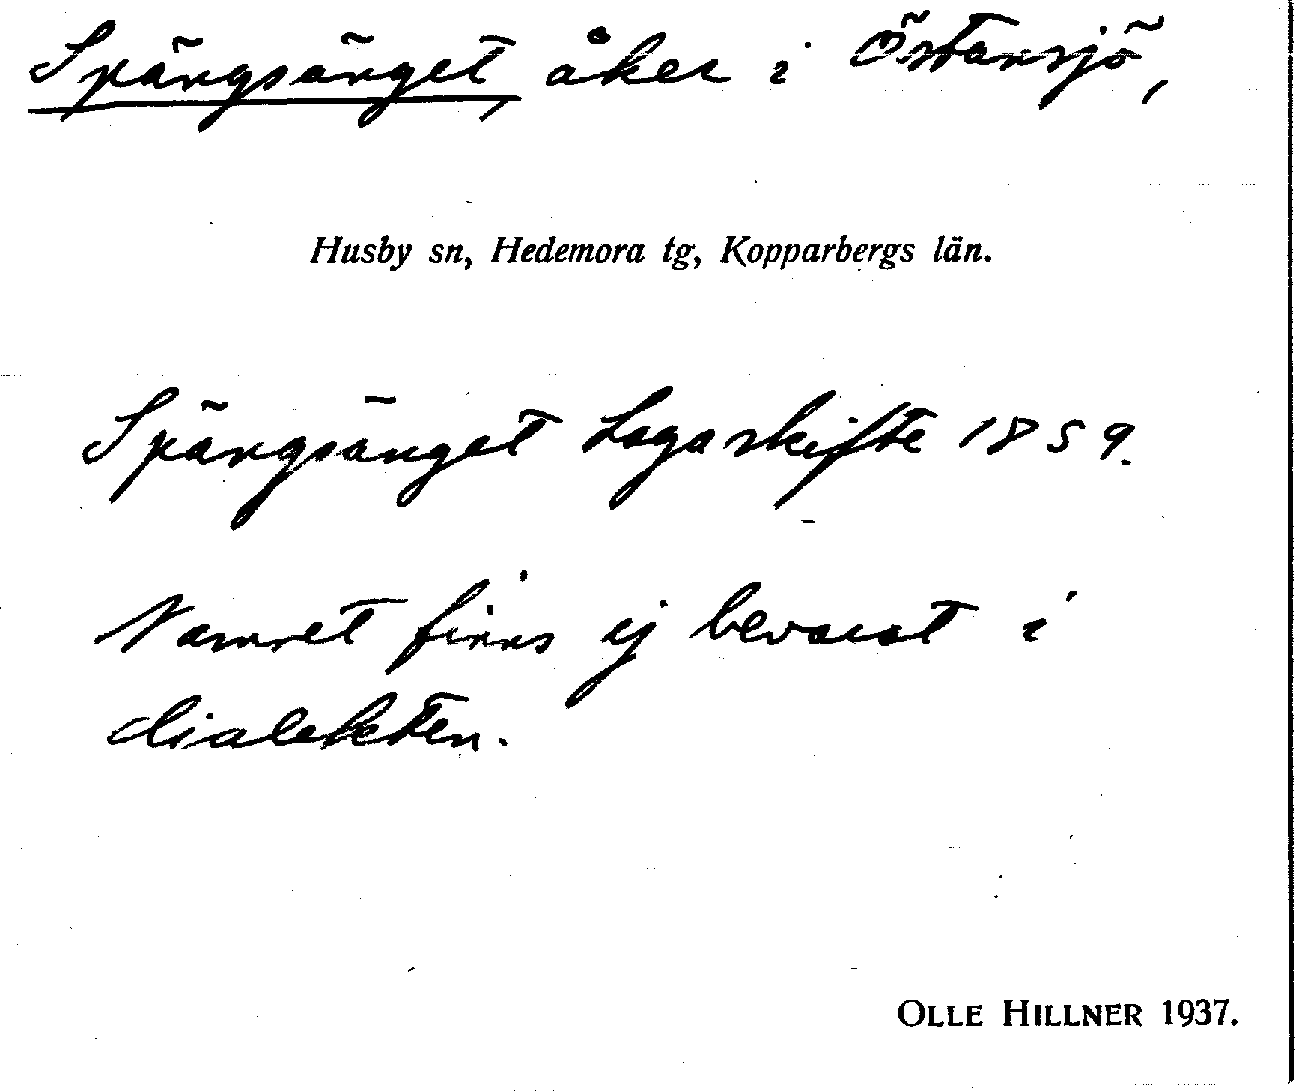 Spängsänget, åker i Östansjö,
Husby sn, Hedemora tg, Kopparbergs län.
Spängsänget Laga skifte 1859.
Namnet finns ej bevarat i
dialekten.
OLLE HILLNER 1937.